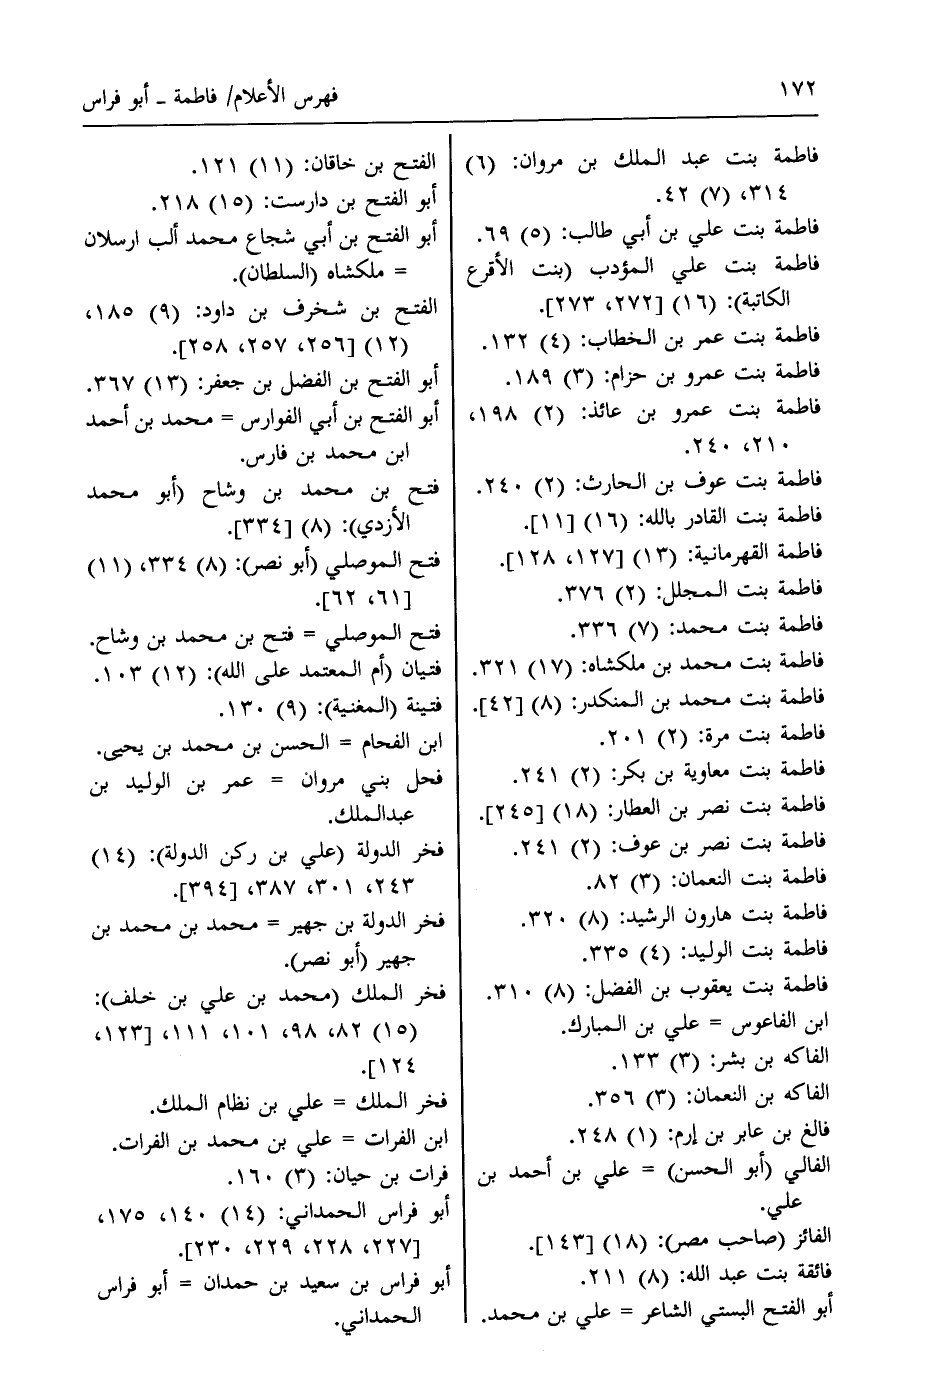 ١٧٢
فهرس الأعلام/ فاطمة ـ أبو فراس
فاطمة بنت عبد الملك بن مروان: (٦)
٣١٤، (٧) ٤٢.
فاطمة بنت علي بن أبي طالب: (٥) ٦٩.
فاطمة بنت علي المؤدب (بنت الأقرع
الكاتبة): (١٦) [٢٧٢، ٢٧٣].
فاطمة بنت عمر بن الخطاب: (٤) ١٣٢.
فاطمة بنت عمرو بن حزام: (٣) ١٨٩.
فاطمة بنت عمرو بن عائذ: (٢) ١٩٨،
٢١٠، ٢٤٠.
فاطمة بنت عوف بن الحارث: (٢) ٢٤٠.
فاطمة بنت القادر بالله: (١٦) [١١].
فاطمة القهرمانية: (١٣) [١٢٧، ١٢٨].
فاطمة بنت المجلل: (٢) ٣٧٦.
فاطمة بنت محمد: (٧) ٣٣٦.
فاطمة بنت محمد بن ملكشاه: (١٧) ٣٢١.
فاطمة بنت محمد بن المنكدر: (٨) [٤٢].
فاطمة بنت مرة: (٢) ٢٠١.
فاطمة بنت معاوية بن بكر: (٢) ٢٤١.
فاطمة بنت نصر بن العطار: (١٨) [٢٤٥].
فاطمة بنت نصر بن عوف: (٢) ٢٤١.
فاطمة بنت النعمان: (٣) ٨٢.
فاطمة بنت هارون الرشيد: (٨) ٣٢٠.
فاطمة بنت الوليد: (٤) ٣٣٥.
فاطمة بنت يعقوب بن الفضل: (٨) ٣١٠.
ابن الفاعوس = علي بن المبارك.
الفاكه بن بشر: (٣) ١٣٣.
الفاكه بن النعمان: (٣) ٣٥٦.
فالغ بن عابر بن إرم: (١) ٢٤٨.
الفالي (أبو الحسن) = علي بن أحمد بن
علي.
الفائز (صاحب مصر): (١٨) [١٤٣].
فائقة بنت عبد الله: (٨) ٢١١.
أبو الفتح البستي الشاعر = علي بن محمد.
الفتح بن خاقان: (١١) ١٢١.
أبو الفتح بن دارست: (١٥) ٢١٨.
أبو الفتح بن أبي شجاع محمد ألب ارسلان
= ملكشاه (السلطان).
الفتح بن شخرف بن داود: (٩) ١٨٥،
(١٢) [٢٥٦، ٢٥٧، ٢٥٨].
أبو الفتح بن الفضل بن جعفر: (١٣) ٣٦٧.
أبو الفتح بن أبي الفوارس = محمد بن أحمد
ابن محمد بن فارس.
فتح بن محمد بن وشاح (أبو محمد
الأزدي): (٨) [٣٣٤].
فتح الموصلي (أبو نصر): (٨) ٣٣٤، (١١)
[٦١، ٦٢].
فتح الموصلي = فتح بن محمد بن وشاح.
فتيان (أم المعتمد على الله): (١٢) ١٠٣.
فتينة (المغنية): (٩) ١٣٠.
ابن الفحام = الحسن بن محمد بن يحيى.
فحل بني مروان = عمر بن الوليد بن
عبدالملك.
فخر الدولة (علي بن ركن الدولة): (١٤)
٢٤٣، ٣٠١، ٣٨٧، [٣٩٤].
فخر الدولة بن جهير = محمد بن محمد بن
جهير (أبو نصر).
فخر الملك (محمد بن علي بن خلف):
(١٥) ٨٢، ٩٨، ١٠١، ١١١، [١٢٣،
١٢٤].
فخر الملك = علي بن نظام الملك.
ابن الفرات = علي بن محمد بن الفرات.
فرات بن حيان: (٣) ١٦٠.
أبو فراس الحمداني: (١٤) ١٤٠، ١٧٥،
[٢٢٧، ٢٢٨، ٢٢٩، ٢٣٠].
أبو فراس بن سعيد بن حمدان = أبو فراس
الحمداني.